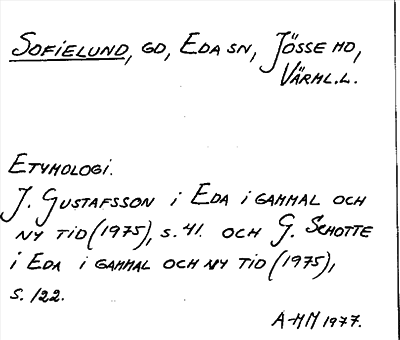 SOFIELUND, GD, EDA SN, JÖSSE HD,
VÄRML.L.
ETYMOLOGI.
J. GUSTAFSSON i EDA i GAMMAL OCH
NY TID (1975), S. 41. OCH G. SCHOTTE
i EDA i GAMMAL OCH NY TID (1975),
S. 122.
A-HM 1977.